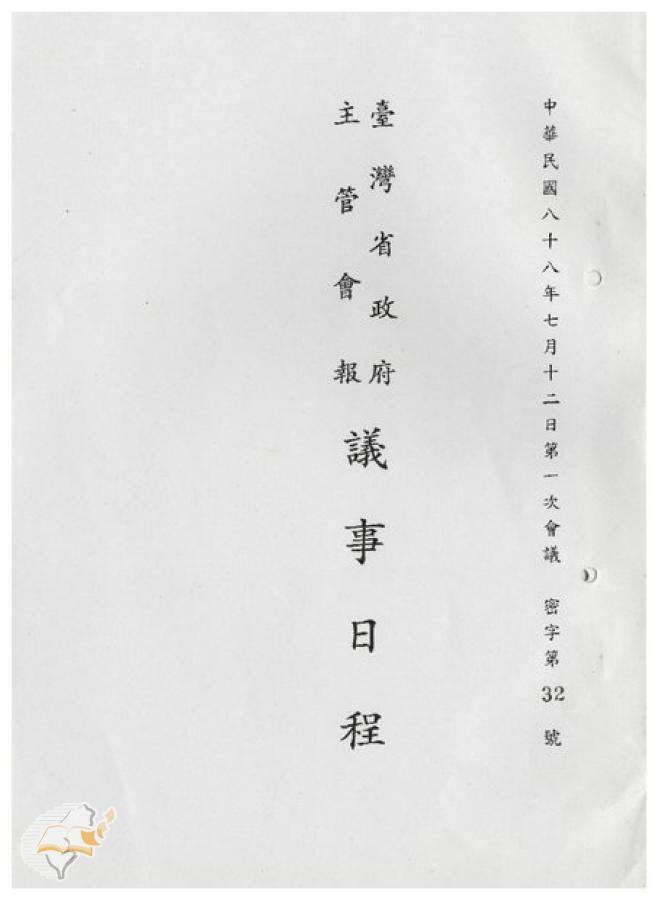 中華民國八十八年七月十二日第一次會議 密字第32號
臺灣省政府
主管會報
議事日程